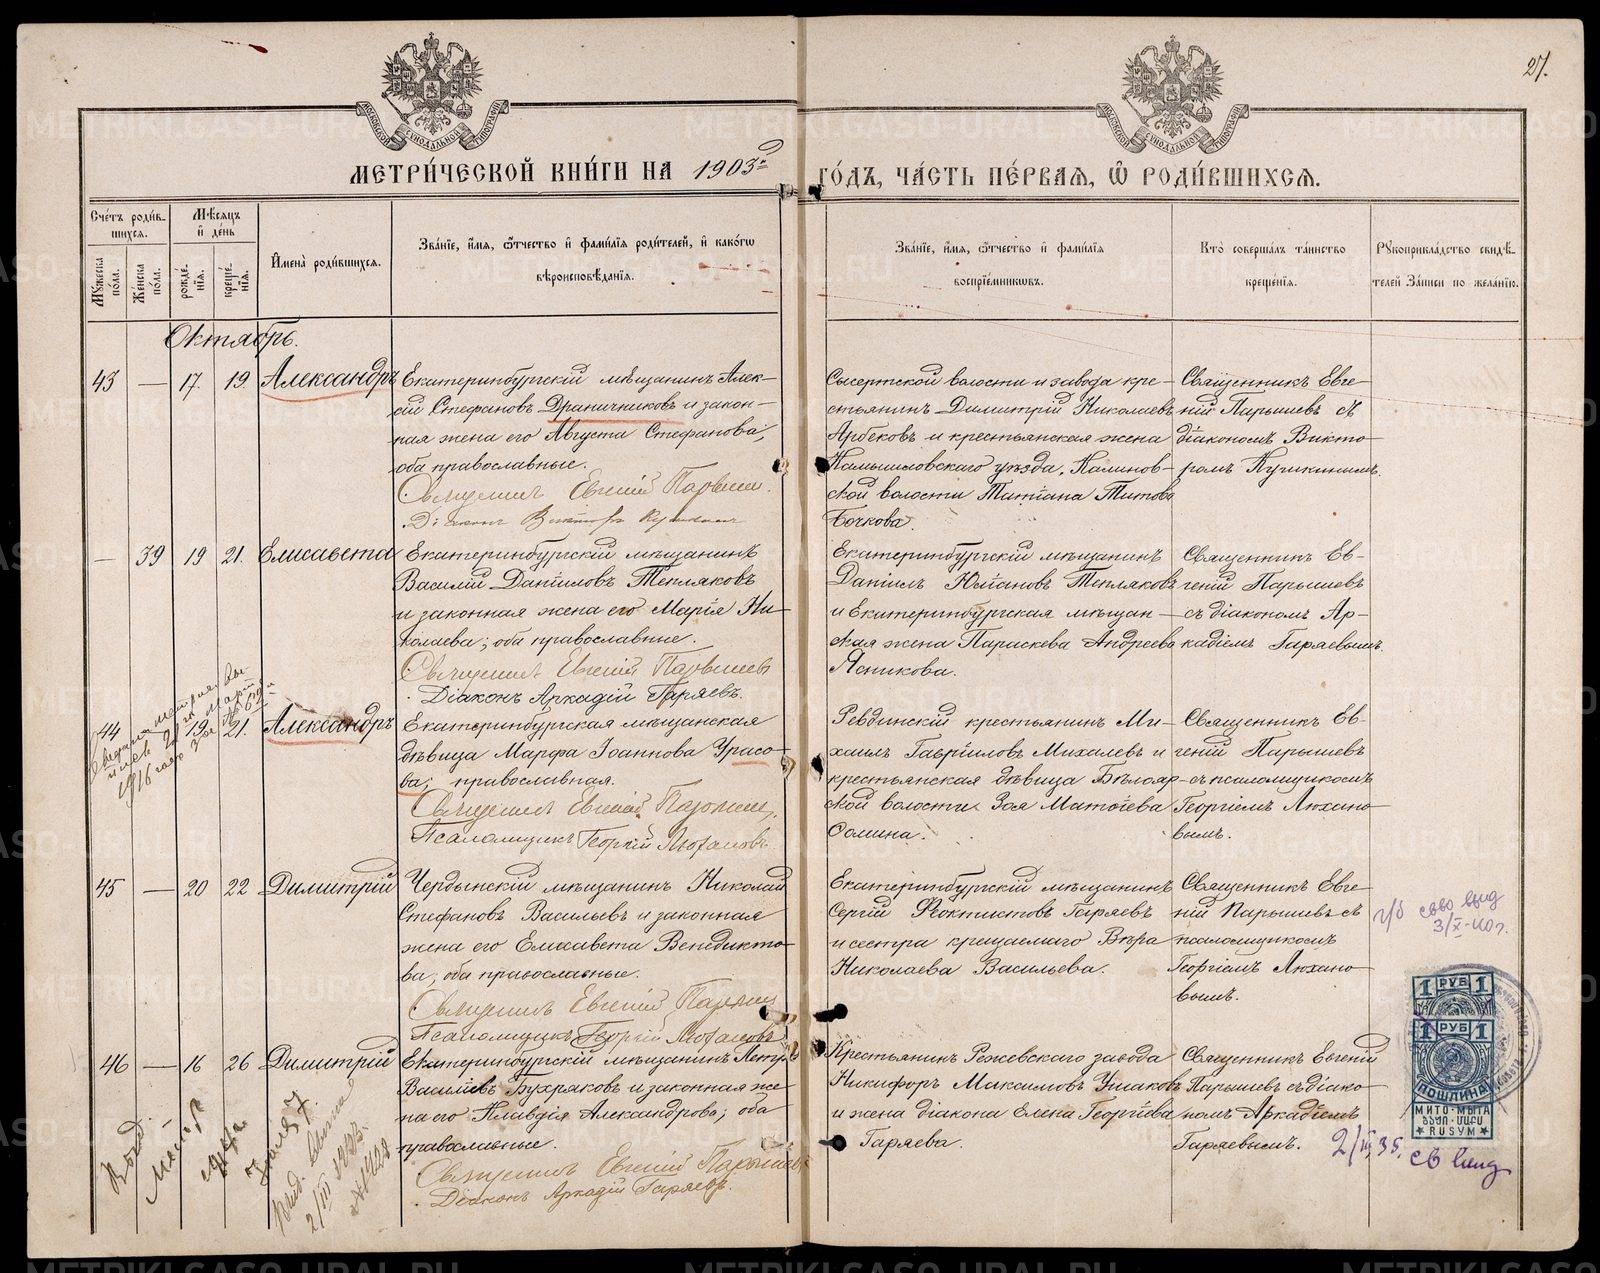 27.
МЕТРИ́ЧЕСКОЙ КНИ́ГИ НА 1903й ГО́ДЪ, ЧА́СТЬ ПЕ́РВАѦ, Ѿ РОДИ́ВШИХСѦ.
Счётъ роди́вшихсѧ.
Мꙋ́жеска по́ла.
Же́нска по́ла.
Мѣ́сѧцъ и҆ де́нь
рожде́нїѧ.
креще́нїѧ.
И҆мена̀ роди́вшихсѧ.
Зва́нїе, и҆́мѧ, ѻ҆́тчество и҆ фами́лїѧ роди́телей, и҆ како́гѡ
вѣроисповѣ́данїѧ.
Зва́нїе, и҆́мѧ, ѻ҆́тчество и҆ фами́лїѧ
воспрїе́мникѡвъ.
Кто̀ соверша́лъ та́инство
креще́нїѧ.
Рꙋкоприкла́дство свидѣ́телей за́писи по жела́нїю.
Октябрь.
43 — 17. 19. Александръ
Екатеринбургскій мѣщанинъ Алек-
сій Стефановъ Драничниковъ и закон-
ная жена его Августа Стефанова,
оба православные.
Священникъ Евгеній Парышевъ.
Діаконъ Викторъ Пушкинъ
Сысертской волости и завода кре-
стьянинъ Димитрій Николаевъ
Арбековъ и крестьянская жена
Камышловскаго уѣзда, Калинов-
ской волости Татіана Титова
Бочкова.
Священникъ Евге-
ній Парышевъ съ
діакономъ Викто-
ромъ Пушкинымъ.
— 39 19 21. Елисавета
Екатеринбургскій мѣщанинъ
Василій Даніиловъ Тепляковъ
и законная жена его Марія Ни-
колаева; оба православные.
Священникъ Евгеній Парышевъ
Діаконъ Аркадій Гаряевъ.
Екатеринбургскій мѣщанинъ
Даніилъ Юліановъ Тепляковъ
и Екатеринбургская мѣщан-
ская жена Параскева Андреева
Ясникова.
Священникъ Ев-
геній Парышевъ
съ діакономъ Ар-
кадіемъ Гаряевымъ.
44 19. 21. Александръ
1916 года
Екатеринбургская мѣщанская
дѣвица Марфа Іоаннова Урасо-
ва; православная.
Священникъ Евгеній Парышевъ,
Псаломщикъ Георгій Люхановъ.
Ревдинскій крестьянинъ Ми-
хаилъ Гавріиловъ Михалевъ и
крестьянская дѣвица Бѣлояр-
ской волости Зоя Матѳіева
Сомина.
Священникъ Ев-
геній Парышевъ
съ псаломщикомъ
Георгіемъ Люхано-
вымъ.
45 — 20 22 Димитрій
Чердынскій мѣщанинъ Николай
Стефановъ Васильевъ и законная
жена его Елисавета Венедикто-
ва; оба православные.
Священникъ Евгеній Парышевъ
Псаломщикъ Георгій Люхановъ
Екатеринбургскій мѣщанинъ
Сергій Ѳеоктистовъ Гаряевъ
и сестра крещаемаго Вѣра
Николаева Васильева.
Священникъ Евге-
ній Парышевъ съ
псаломщикомъ
Георгіемъ Люхано-
вымъ.
3/X-40 г.
46 — 16 26 Димитрій
Екатеринбургскій мѣщанинъ Петръ
Василіевъ Бухряковъ и законная же-
на его Клавдія Александрова; оба
православные.
Священникъ Евгеній Парышевъ
Діаконъ Аркадій Гаряевъ.
Крестьянинъ Режевскаго завода
Никифоръ Максимовъ Ушаковъ
и жена діакона Елена Георгіева
Гаряева.
Священникъ Евгеній
Парышевъ съ діако-
номъ Аркадіемъ
Гаряевымъ.
1 РУБ 1
1 РУБ 1
ПОШЛИНА
МИТО·МЫТА
RUSYM
2/III 35.